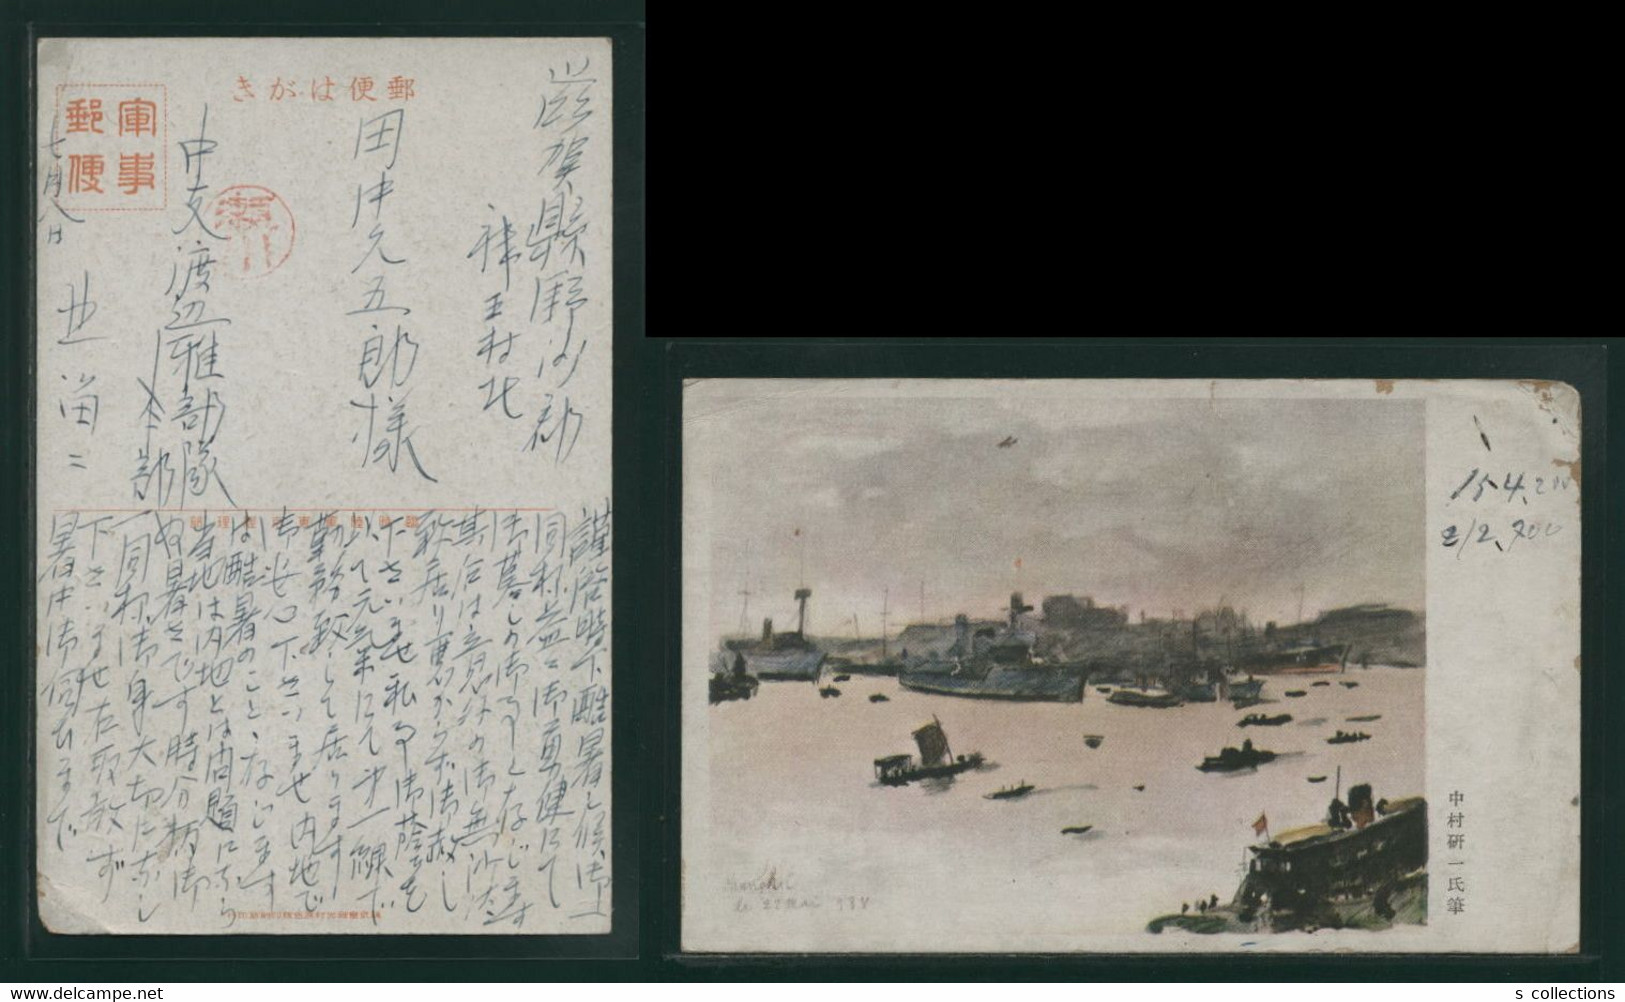 郵便はがき
軍事
郵便
滋賀縣野洲郡
村北
田中元五郎様
中支渡辺雅部隊
本部
七月八日
謹啓時下酷暑之候御一
同様益々御勇健にて
御暮しの御事と存じます
其后は意外の御無沙汰
致居り悪からず御赦し
下さいませ私事御蔭を
以て元気にて第一線で
勤務致して居ります
御安心下さいませ内地で
は酷暑のこと存じます
当地は内地とは問題になら
ぬ暑さです時分柄御
一同様御身大切になし
下さいませ右取敢ず
暑中御伺ひまで
中村研一氏筆
154,200
212,700
s collections